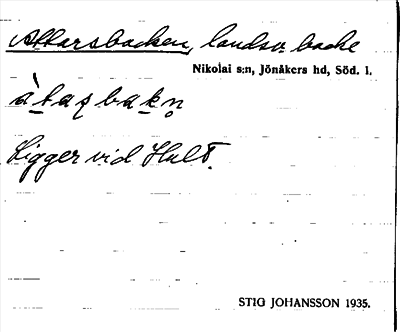 Attarsbacken, landsv. backe
Nikolai s:n, Jönåkers hd, Söd. l.
Ligger vid Hult.
STIG JOHANSSON 1935.